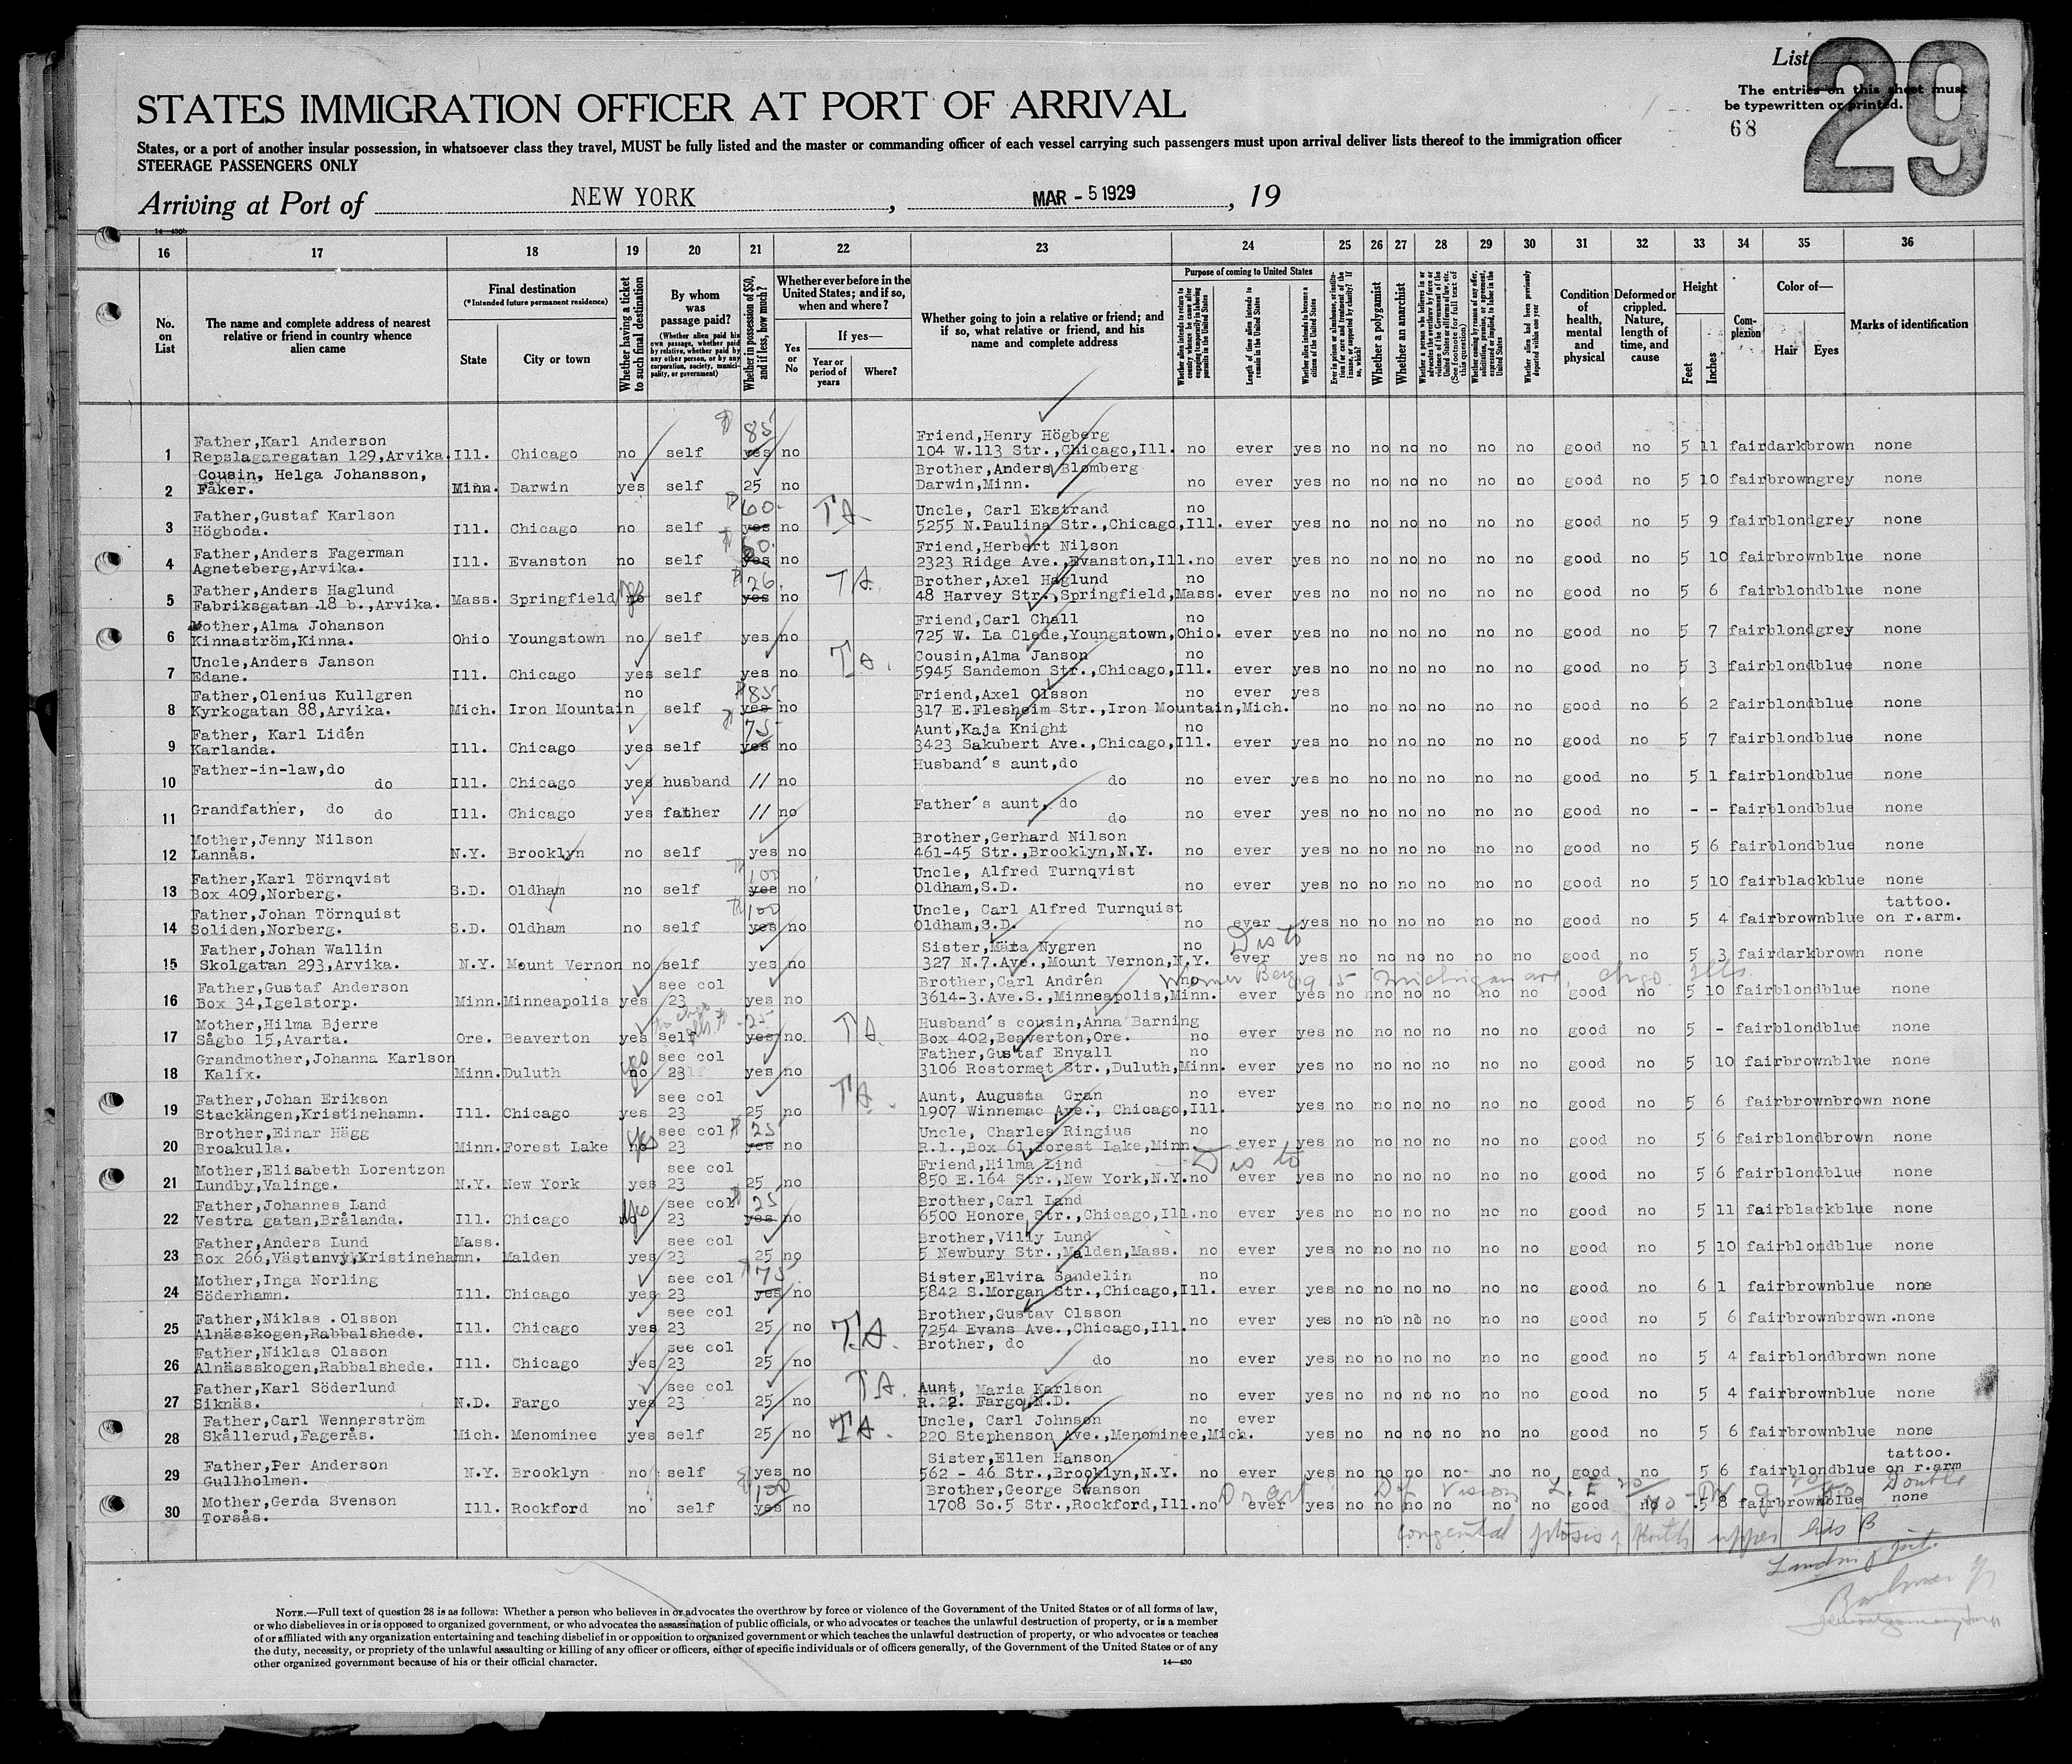 List
29
The entries on this sheet must
be typewritten or printed.
68
STATES IMMIGRATION OFFICER AT PORT OF ARRIVAL
States, or a port of another insular possession, in whatsoever class they travel, MUST be fully listed and the master or commanding officer of each vessel carrying such passengers must upon arrival deliver lists thereof to the immigration officer
STEERAGE PASSENGERS ONLY
Arriving at Port of NEW YORK , MAR - 5 1929 , 19
14—430b
16 17 18 19 20 21 22 23 24 25 26 27 28 29 30 31 32 33 34 35 36
No. on List
The name and complete address of nearest relative or friend in country whence alien came
Final destination (*Intended future permanent residence)
State
City or town
Whether having a ticket to such final destination
By whom was passage paid? (Whether alien paid his own passage, whether paid by relative, whether paid by any other person, or by any corporation, society, municipality, or government)
Whether in possession of $50, and if less, how much?
Whether ever before in the United States; and if so, when and where?
Yes or No
If yes—
Year or period of years
Where?
Whether going to join a relative or friend; and if so, what relative or friend, and his name and complete address
Purpose of coming to United States
Length of time alien intends to remain in the United States
Whether alien intends to become a citizen of the United States
Whether a polygamist
Whether an anarchist
Condition of health, mental and physical
Deformed or crippled. Nature, length of time, and cause
Height
Feet
Inches
Complexion
Color of—
Hair
Eyes
Marks of identification
1 Father,Karl Anderson Repslagaregatan 129,Arvika. Ill. Chicago no self 85 yes no Friend,Henry Högberg 104 W.113 Str.,Chicago,Ill. no ever yes no no no no no no good no 5 11 fair dark brown none
2 Cousin, Helga Johansson, Fåker. Minn. Darwin yes self 25 no Brother,Anders Blomberg Darwin,Minn. no ever yes no no no no no no good no 5 10 fair brown grey none
3 Father,Gustaf Karlson Högboda. Ill. Chicago no self 60 yes no TA Uncle, Carl Ekstrand 5255 N.Paulina Str.,Chicago,Ill. no ever yes no no no no no no good no 5 9 fair blond grey none
4 Father,Anders Fagerman Agneteberg,Arvika. Ill. Evanston no self 60 yes no Friend,Herbert Nilson 2323 Ridge Ave.,Evanston,Ill. no ever yes no no no no no no good no 5 10 fair brown blue none
5 Father,Anders Haglund Fabriksgatan 18 b.,Arvika. Mass. Springfield yes no self 26 yes no TA Brother,Axel Haglund 48 Harvey Str.,Springfield,Mass. no ever yes no no no no no no good no 5 6 fair blond blue none
6 Mother,Alma Johanson Kinnaström,Kinna. Ohio Youngstown no self yes no Friend,Carl Chall 725 W. La Clede,Youngstown,Ohio. no ever yes no no no no no no good no 5 7 fair blond grey none
7 Uncle,Anders Janson Edane. Ill. Chicago yes self yes no TA. Cousin,Alma Janson 5945 Sandemon Str.,Chicago,Ill. no ever yes no no no no no no good no 5 3 fair blond blue none
8 Father,Olenius Kullgren Kyrkogatan 88,Arvika. Mich. Iron Mountain no self 85 yes no Friend,Axel Olsson 317 E.Flesheim Str.,Iron Mountain,Mich. no ever yes no no no no no no good no 6 2 fair blond blue none
9 Father, Karl Lidén Karlanda. Ill. Chicago yes self 75 yes no Aunt,Kaja Knight 3423 Sakubert Ave.,Chicago,Ill. no ever yes no no no no no no good no 5 7 fair blond blue none
10 Father-in-law,do do Ill. Chicago yes husband // no Husband's aunt,do do no ever yes no no no no no no good no 5 1 fair blond blue none
11 Grandfather, do do Ill. Chicago yes father // no Father's aunt, do do no ever yes no no no no no no good no - - fair blond blue none
12 Mother,Jenny Nilson Lannås. N.Y. Brooklyn no self yes no Brother,Gerhard Nilson 461-45 Str.,Brooklyn,N.Y. no ever yes no no no no no no good no 5 6 fair blond blue none
13 Father,Karl Törnqvist Box 409,Norberg. S.D. Oldham no self 100 yes no Uncle, Alfred Turnqvist Oldham,S.D. no ever yes no no no no no no good no 5 10 fair black blue none
14 Father,Johan Törnquist Soliden,Norberg. S.D. Oldham no self 100 yes no Uncle, Carl Alfred Turnquist Oldham,S.D. no ever yes no no no no no no good no 5 4 fair brown blue tattoo. on r.arm.
15 Father,Johan Wallin Skolgatan 293,Arvika. N.Y. Mount Vernon no self yes no Sister,Märta Nygren 327 N.7.Ave.,Mount Vernon,N.Y. no ever yes no no no no no no good no 5 3 fair dark brown none
Dis to
Michigan ave, Chgo. Ills.
16 Father,Gustaf Anderson Box 34,Igelstorp. Minn. Minneapolis yes see col 23 yes no Brother,Carl Andrén 3614-3.Ave.S.,Minneapolis,Minn. no ever yes no no no no no no good no 5 10 fair blond blue none
17 Mother,Hilma Bjerre Sågbo 15,Avarta. Ore. Beaverton yes self 25 yes no TA Husband's cousin,Anna Barning Box 402,Beaverton,Ore. no ever yes no no no no no no good no 5 - fair blond blue none
18 Grandmother,Johanna Karlson Kalix. Minn. Duluth yes no see col 23 yes no Father,Gustaf Envall 3106 Rostormet Str.,Duluth,Minn. no ever yes no no no no no no good no 5 10 fair brown blue none
19 Father,Johan Erikson Stackängen,Kristinehamn. Ill. Chicago yes see col 23 25 no TA. Aunt, Augusta Gran 1907 Winnemac Ave., Chicago,Ill. no ever yes no no no no no no good no 5 6 fair brown brown none
20 Brother,Einar Hägg Broakulla. Minn. Forest Lake yes no see col 23 25 yes no Uncle, Charles Ringius R.1.,Box 61,Forest Lake,Minn. no ever yes no no no no no no good no 5 6 fair blond brown none
Dis to
21 Mother,Elisabeth Lorentzon Lundby,Valinge. N.Y. New York yes see col 23 25 no Friend,Hilma Lind 850 E.164 Str.,New York,N.Y. no ever yes no no no no no no good no 5 6 fair blond blue none
22 Father,Johannes Land Vestra gatan,Brålanda. Ill. Chicago yes no see col 23 25 yes no Brother,Carl Land 6500 Honore Str.,Chicago,Ill. no ever yes no no no no no no good no 5 11 fair black blue none
23 Father,Anders Lund Box 266,Västanvyk,Kristinehamn. Mass. Malden yes see col 23 25 no Brother,Villy Lund 5 Newbury Str.,Malden,Mass. no ever yes no no no no no no good no 5 10 fair blond blue none
24 Mother,Inga Norling Söderhamn. Ill. Chicago yes see col 23 75 yes no Sister,Elvira Sandelin 5842 S.Morgan Str.,Chicago,Ill. no ever yes no no no no no no good no 6 1 fair brown blue none
25 Father,Niklas .Olsson Alnässkogen,Rabbalshede. Ill. Chicago yes see col 23 25 no T.A. Brother,Gustav Olsson 7254 Evans Ave.,Chicago,Ill. no ever yes no no no no no no good no 5 6 fair brown brown .none
26 Father,Niklas Olsson Alnässskogen,Rabbalshede. Ill. Chicago yes see col 23 25 no Brother, do do no ever yes no no no no no no good no 5 4 fair blond brown none
27 Father,Karl Söderlund Siknäs. N.D. Fargo yes see col 23 25 no TA. Aunt, Maria Karlson R.22. Fargo,N.D. no ever yes no no no no no no good no 5 4 fair brown blue none
28 Father,Carl Wennerström Skållerud,Fagerås. Mich. Menominee yes self 25 no TA. Uncle, Carl Johnson 220 Stephenson Ave.,Menominee,Mich. no ever yes no no no no no no good no 5 6 fair brown blue none
29 Father,Per Anderson Gullholmen. N.Y. Brooklyn no self yes no Sister,Ellen Hanson 562 - 46 Str.,Brooklyn,N.Y. no ever yes no no no no no no good no 5 6 fair blond blue tattoo. on r.arm
30 Mother,Gerda Svenson Torsås. Ill. Rockford no self 100 yes no Brother,George Swanson 1708 So.5 Str.,Rockford,Ill. no ever yes no no no no no no good no 5 8 fair brown blue none
Def Vision Double
congenital ptosis of both upper lids
NOTE.—Full text of question 28 is as follows: Whether a person who believes in or advocates the overthrow by force or violence of the Government of the United States or of all forms of law,
or who disbelieves in or is opposed to organized government, or who advocates the assassination of public officials, or who advocates or teaches the unlawful destruction of property, or is a member
of or affiliated with any organization entertaining and teaching disbelief in or opposition to organized government or which teaches the unlawful destruction of property, or who advocates or teaches
the duty, necessity, or propriety of the unlawful assaulting or killing of any officer or officers, either of specific individuals or of officers generally, of the Government of the United States or of any
other organized government because of his or their official character.
14—430